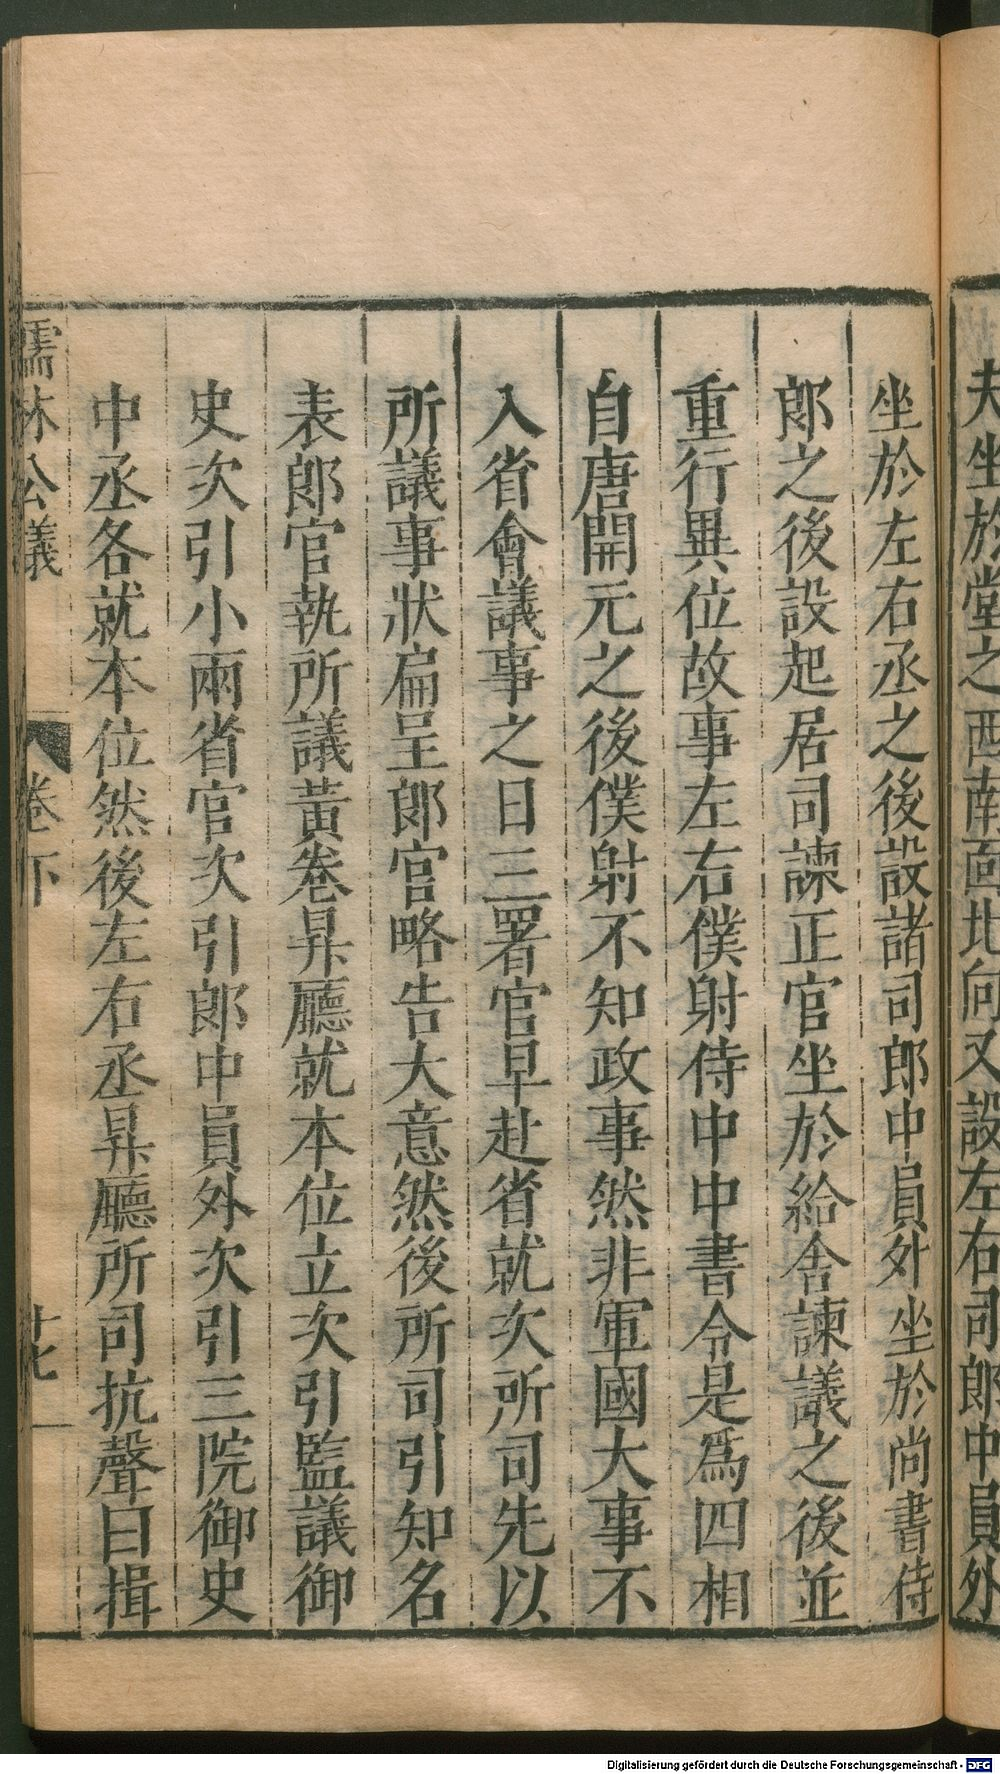 夫坐於堂之西南面北向又設左右司郎中員外
坐於左右丞之後設諸司郎中員外坐於尚書侍
郎之後設起居司諫正官坐於給舍諫議之後並
重行異位故事左右僕射侍中中書令是爲四相
自唐開元之後僕射不知政事然非軍國大事不
入省會議事之日三署官早赴省就次所司先以
所議事狀扁呈郎官略告大意然後所司引知名
表郎官執所議黃卷昇廳就本位立次引監議御
史次引小兩省官次引郎中員外次引三院御史
中丞各就本位然後左右丞昇廳所司抗聲曰揖
儒林公議 卷下 廿七
Digitalisierung gefördert durch die Deutsche Forschungsgemeinschaft - DFG